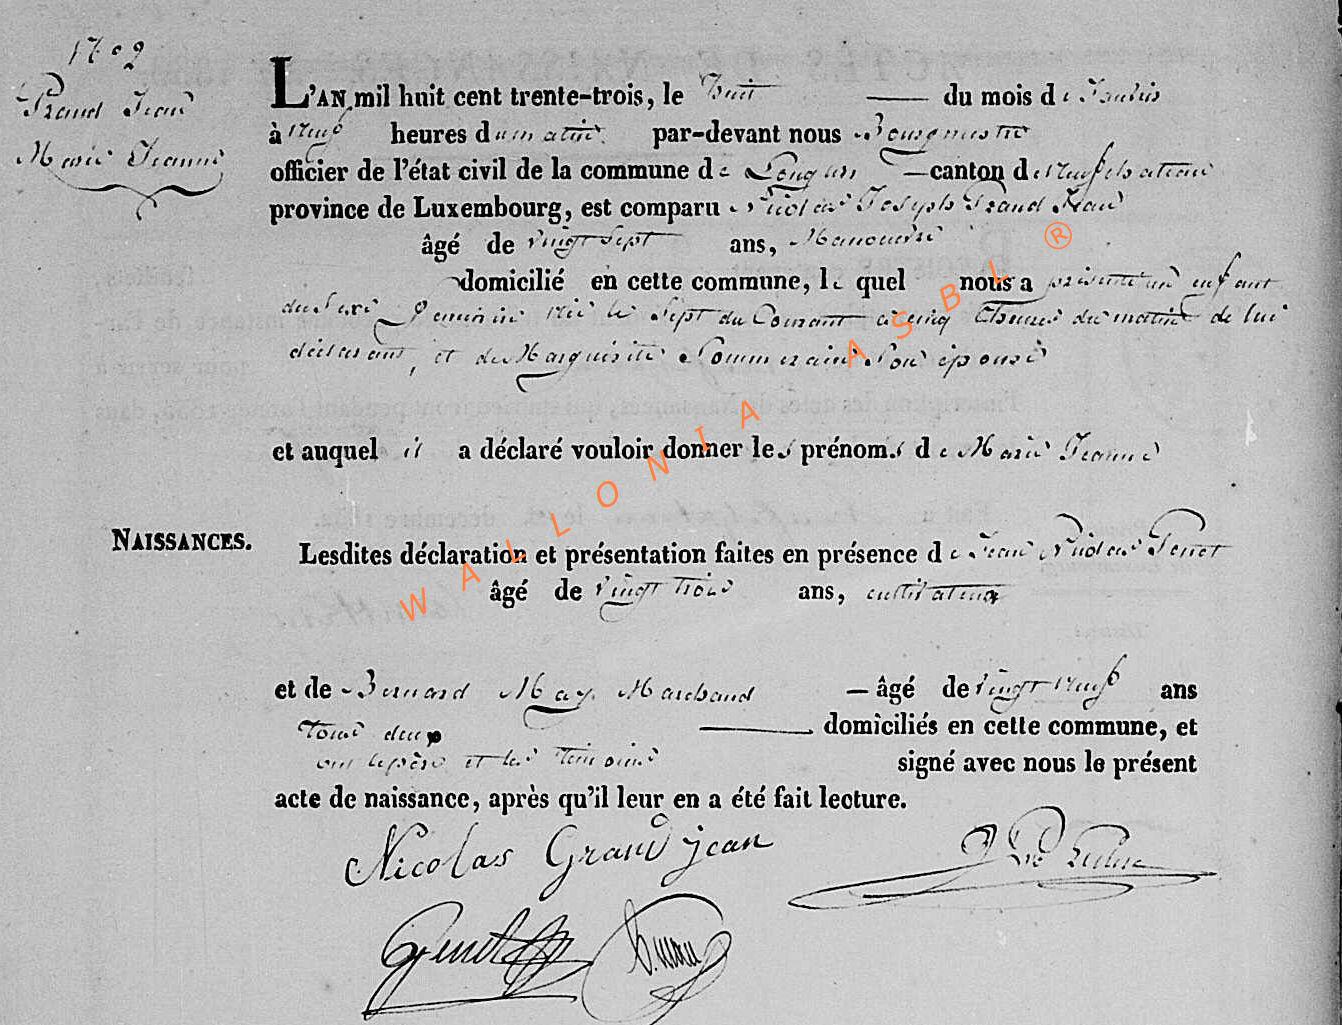 N.° 2
Grand Jean
Marie Jeanne
L'AN mil huit cent trente-trois, le huit du mois de Janvier
à neuf heures du matin par-devant nous Bourgmestre
officier de l'état civil de la commune de Longlier canton de Neufchateau
province de Luxembourg, est comparu Nicolas Joseph Grand Jean
âgé de vingt Sept ans, Manouvrié
domicilié en cette commune, le quel nous a présenté un enfant
du Sexe feminin née le Sept du Courant a cinq heures du matin de lui
déclarant, et de Marguerite Pommeraine Son épouse
et auquel il a déclaré vouloir donner les prénoms de Marie Jeanne
NAISSANCES.
Lesdites déclaration et présentation faites en présence de Jean Nicolas
âgé de vingt trois ans, cultivateur
et de Bernard May Marchand âgé de vingt neuf ans
tous deux domiciliés en cette commune, et
ont le père et les témoins signé avec nous le présent
acte de naissance, après qu'il leur en a été fait lecture.
Nicolas Grand jean
B. may
WALLONIA ASBL ®